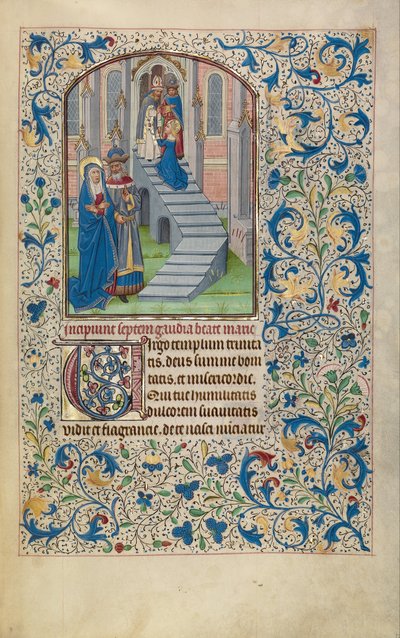 Incipiunt septem gaudia beate marie
Virgo templum trinita
tis. deus summe boni
tatis. et misericordie.
Qui tue humilitatis
dulcorem suavitatis
vidit et flagrancie. de te nasci nunciatur